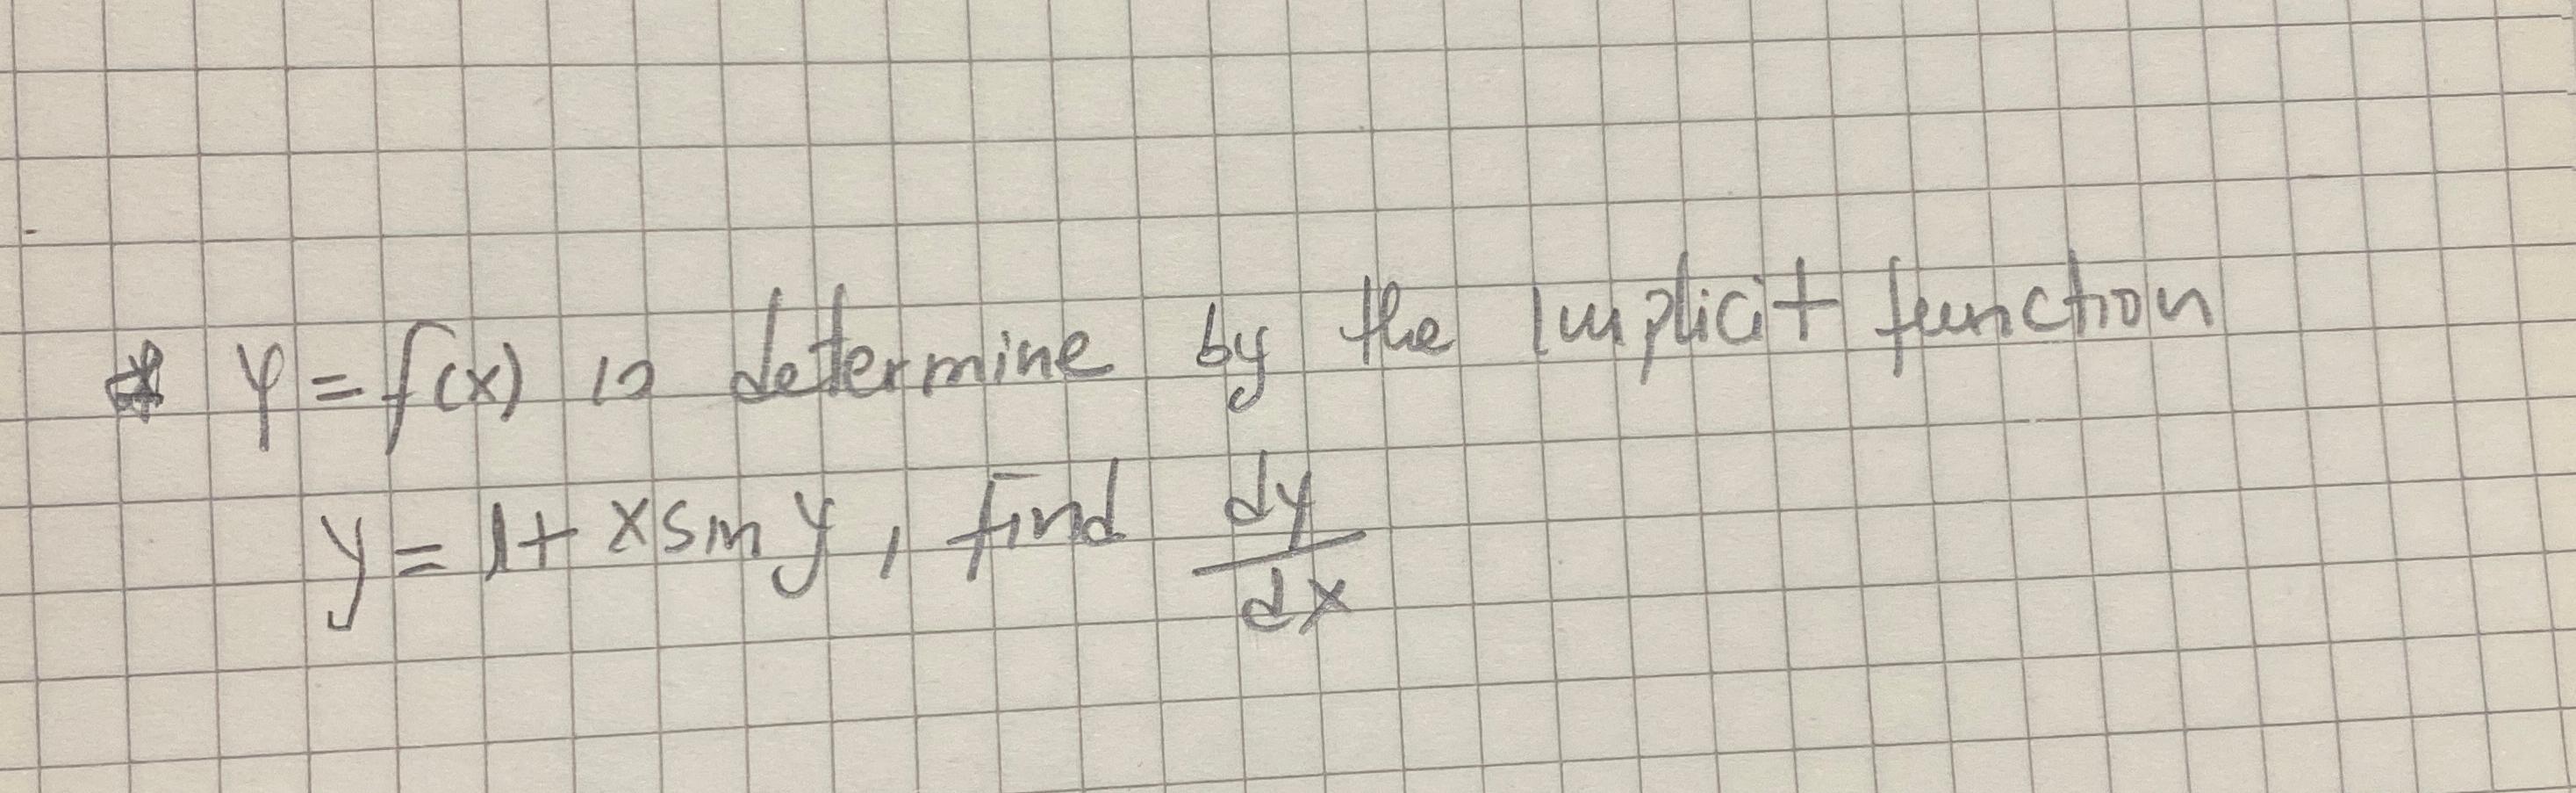 * y = f(x) is determine by the Implicit function
y = 1 + x sin y , find dy/dx